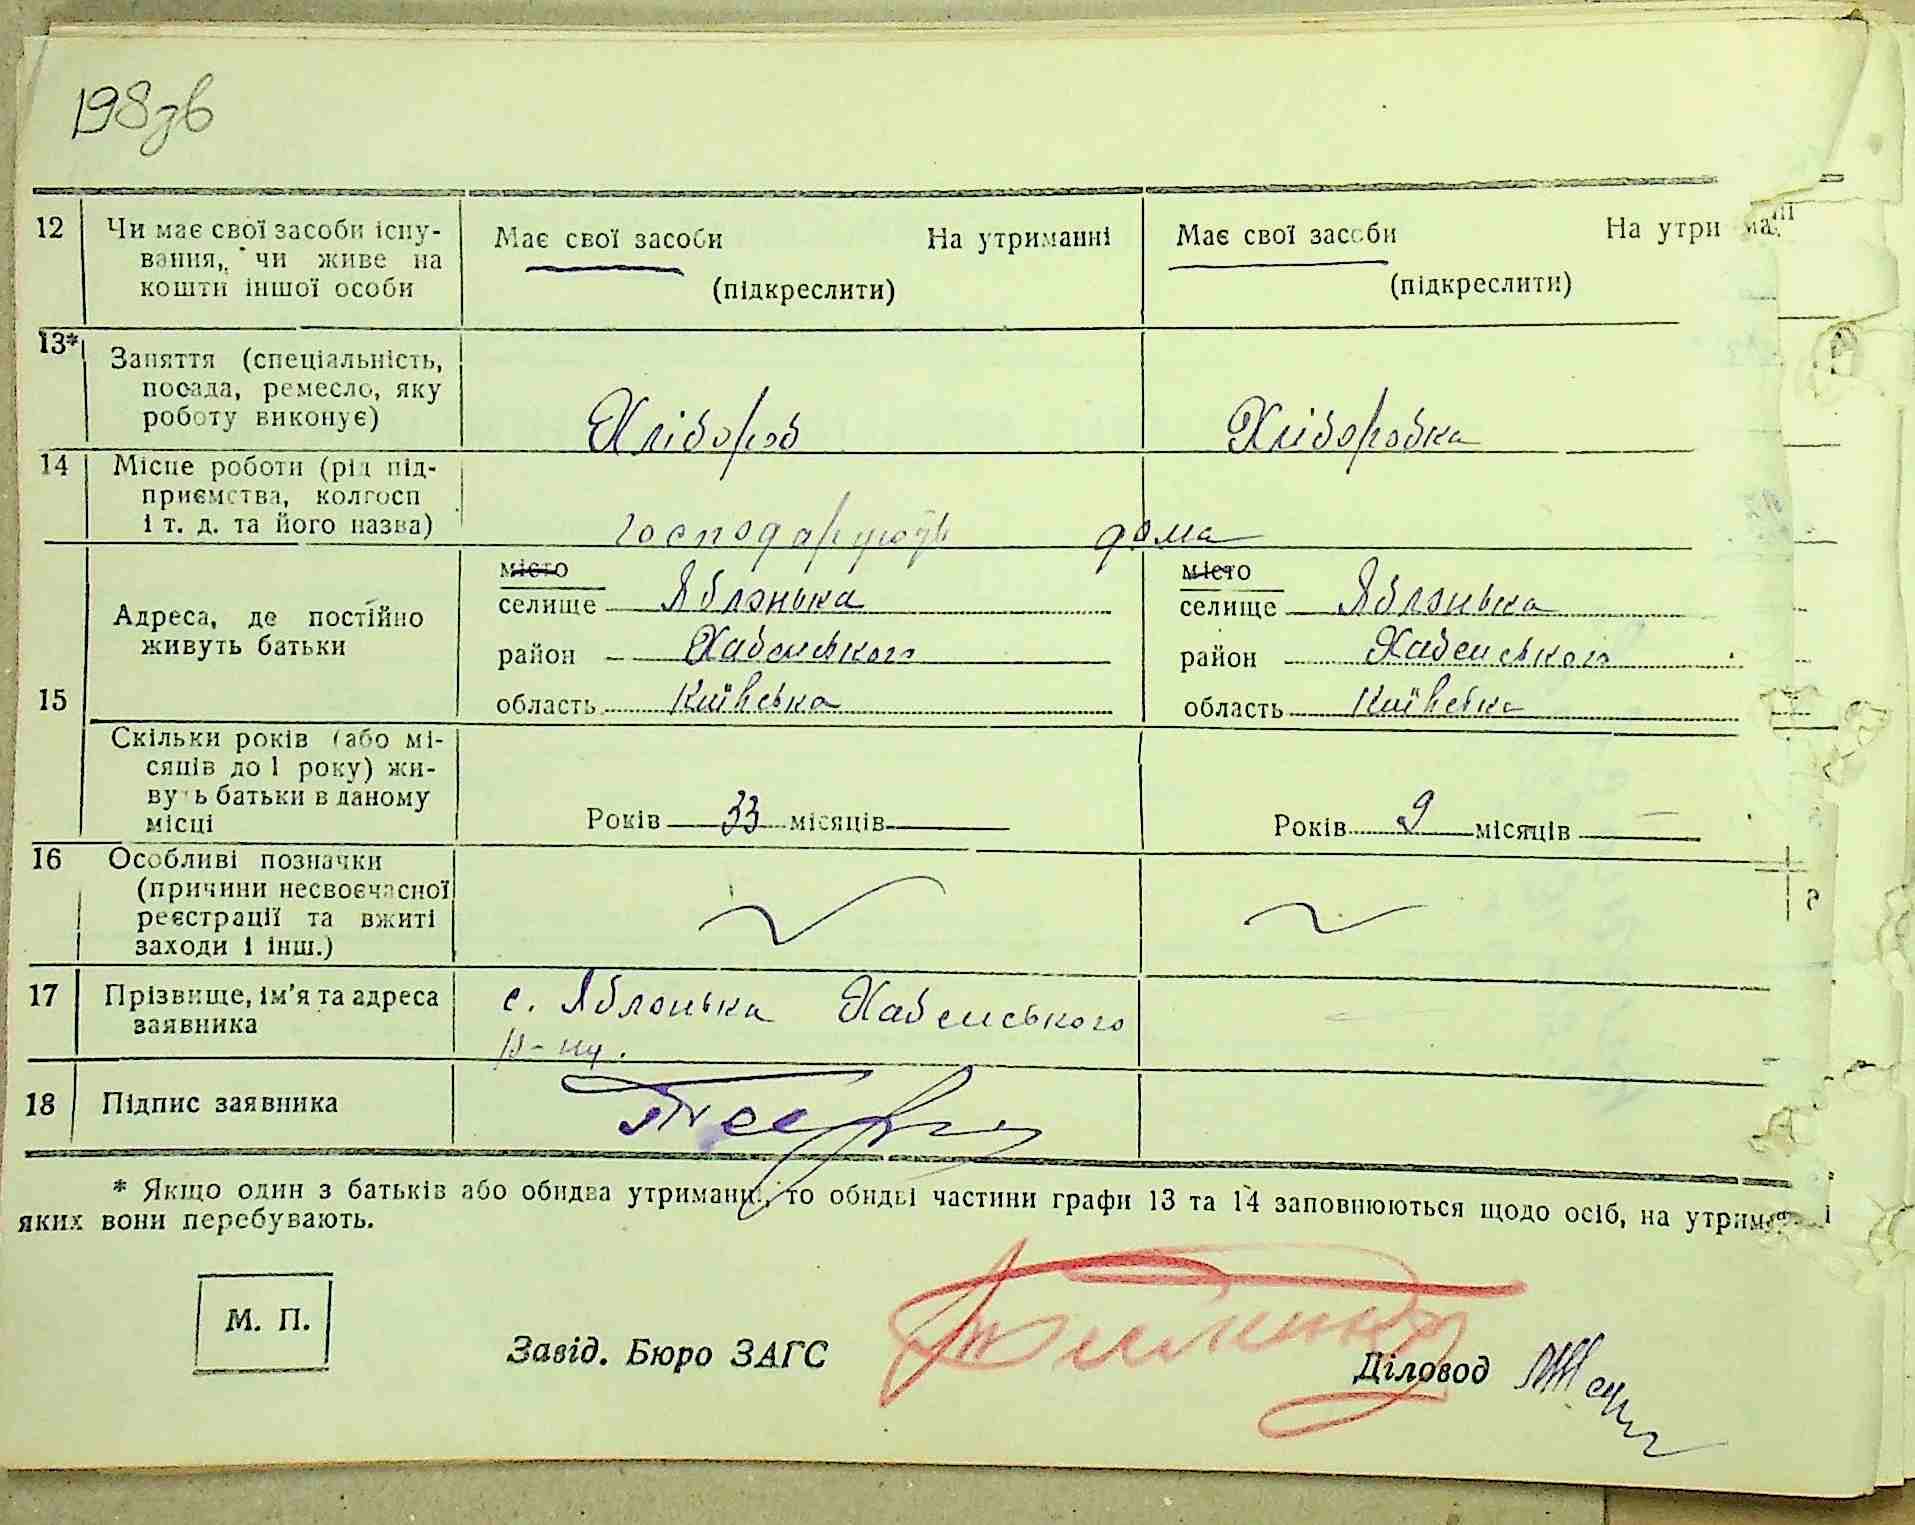 198зв
12 Чи має свої засоби існу- Має свої засоби На утриманні Має свої засоби На утри
вання, чи живе на
кошти іншої особи (підкреслити) (підкреслити)
13* Заняття (спеціальність,
посада, ремесло, яку
роботу виконує) Хлібороб Хліборобка
14 Місце роботи (рід під-
приємства, колгосп
і т. д. та його назва) господарюють дома
місто місто
Адреса, де постійно селище Яблонька селище Яблонька
живуть батьки район Хабенського район Хабенського
15 область Київська область Київська
Скільки років (або мі-
сяців до 1 року) жи-
вуть батьки в даному
місці Років 33 місяців Років 9 місяців —
16 Особливі позначки
(причини несвоєчасної
реєстрації та вжиті
заходи і інш.)
17 Прізвище, ім'я та адреса с. Яблонька Хабенського
заявника р-ну.
18 Підпис заявника
* Якщо один з батьків або обидва утриманці, то обидві частини графи 13 та 14 заповнюються щодо осіб, на утриманні
яких вони перебувають.
М. П.
Завід. Бюро ЗАГС Діловод